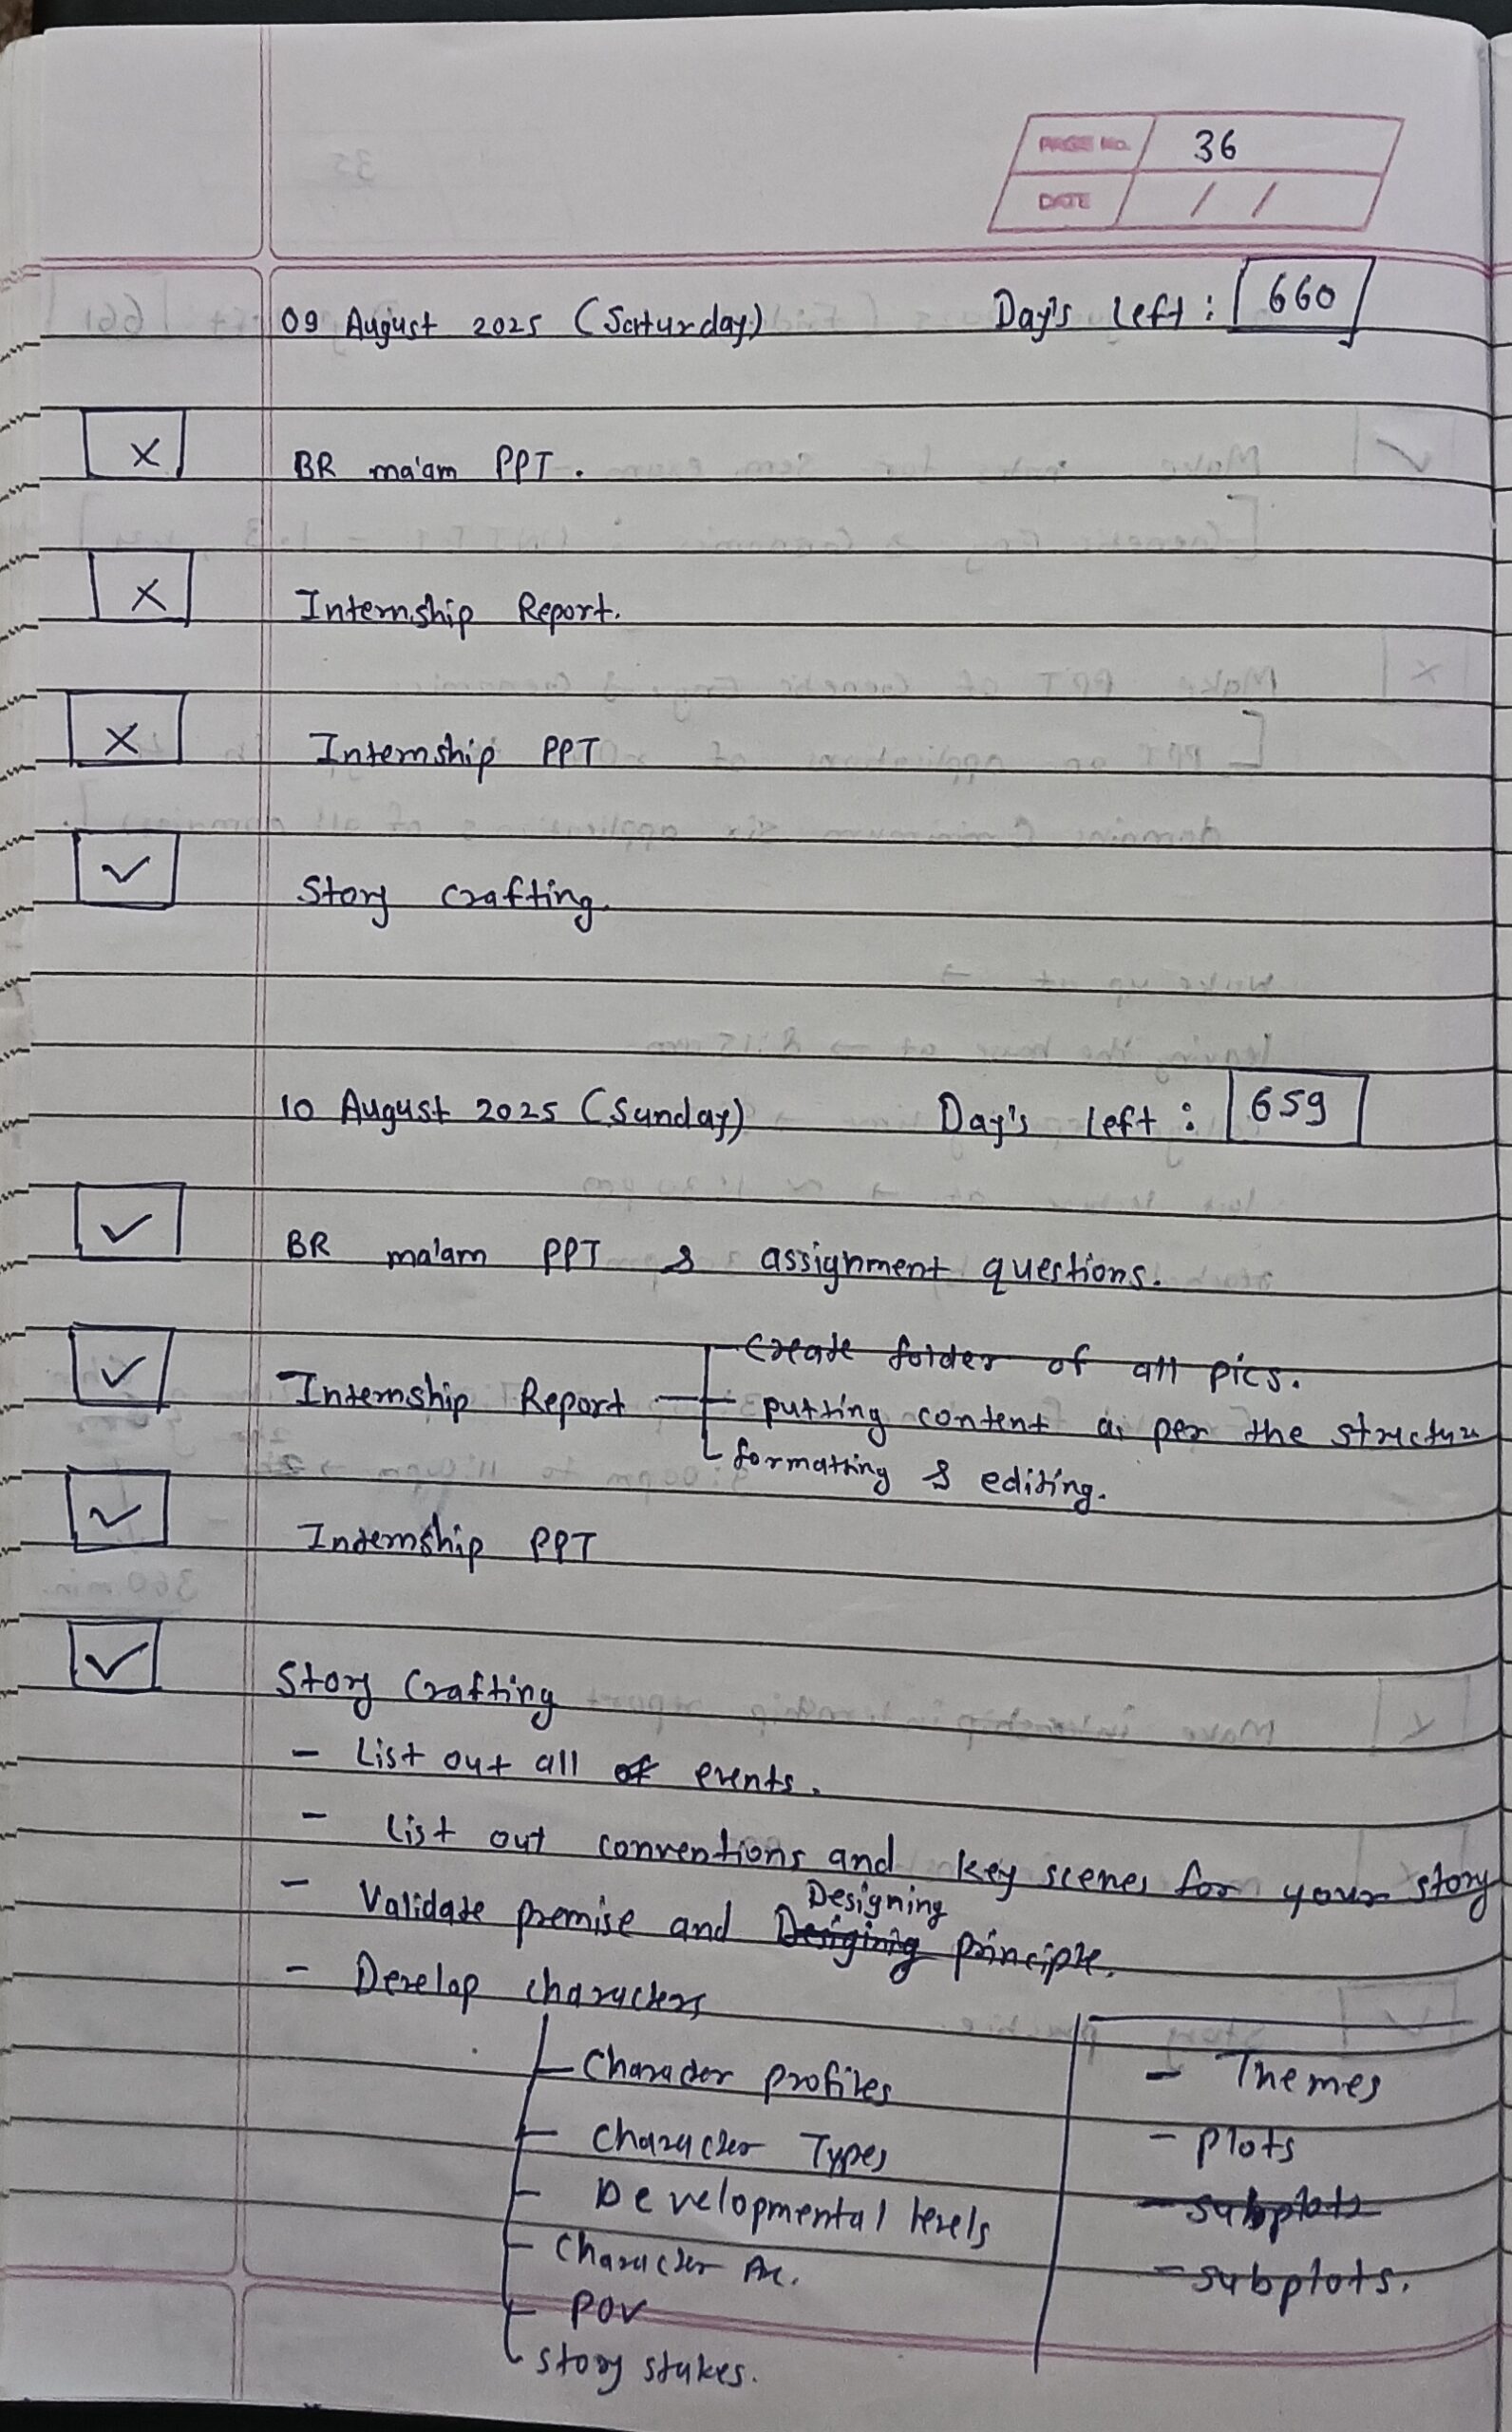 PAGE NO. 36
DATE / /
09 August 2025 (Saturday) Day's left : 660
X BR ma'am PPT.
X Internship Report.
X Internship PPT
✓ Story Crafting.
10 August 2025 (Sunday) Day's left : 659
✓ BR ma'am PPT & assignment questions.
Create folder of all pics.
✓ Internship Report putting content as per the structure
formatting & editing.
✓ Internship PPT
✓ Story Crafting
- List out all of events.
- List out conventions and key scenes for your story
Designing
- Validate premise and Desigining principle.
- Develop characters
Character profiles - Themes
Character Types - plots
Developmental levels - subplots
Character Arc. - subplots.
POV
story stakes.